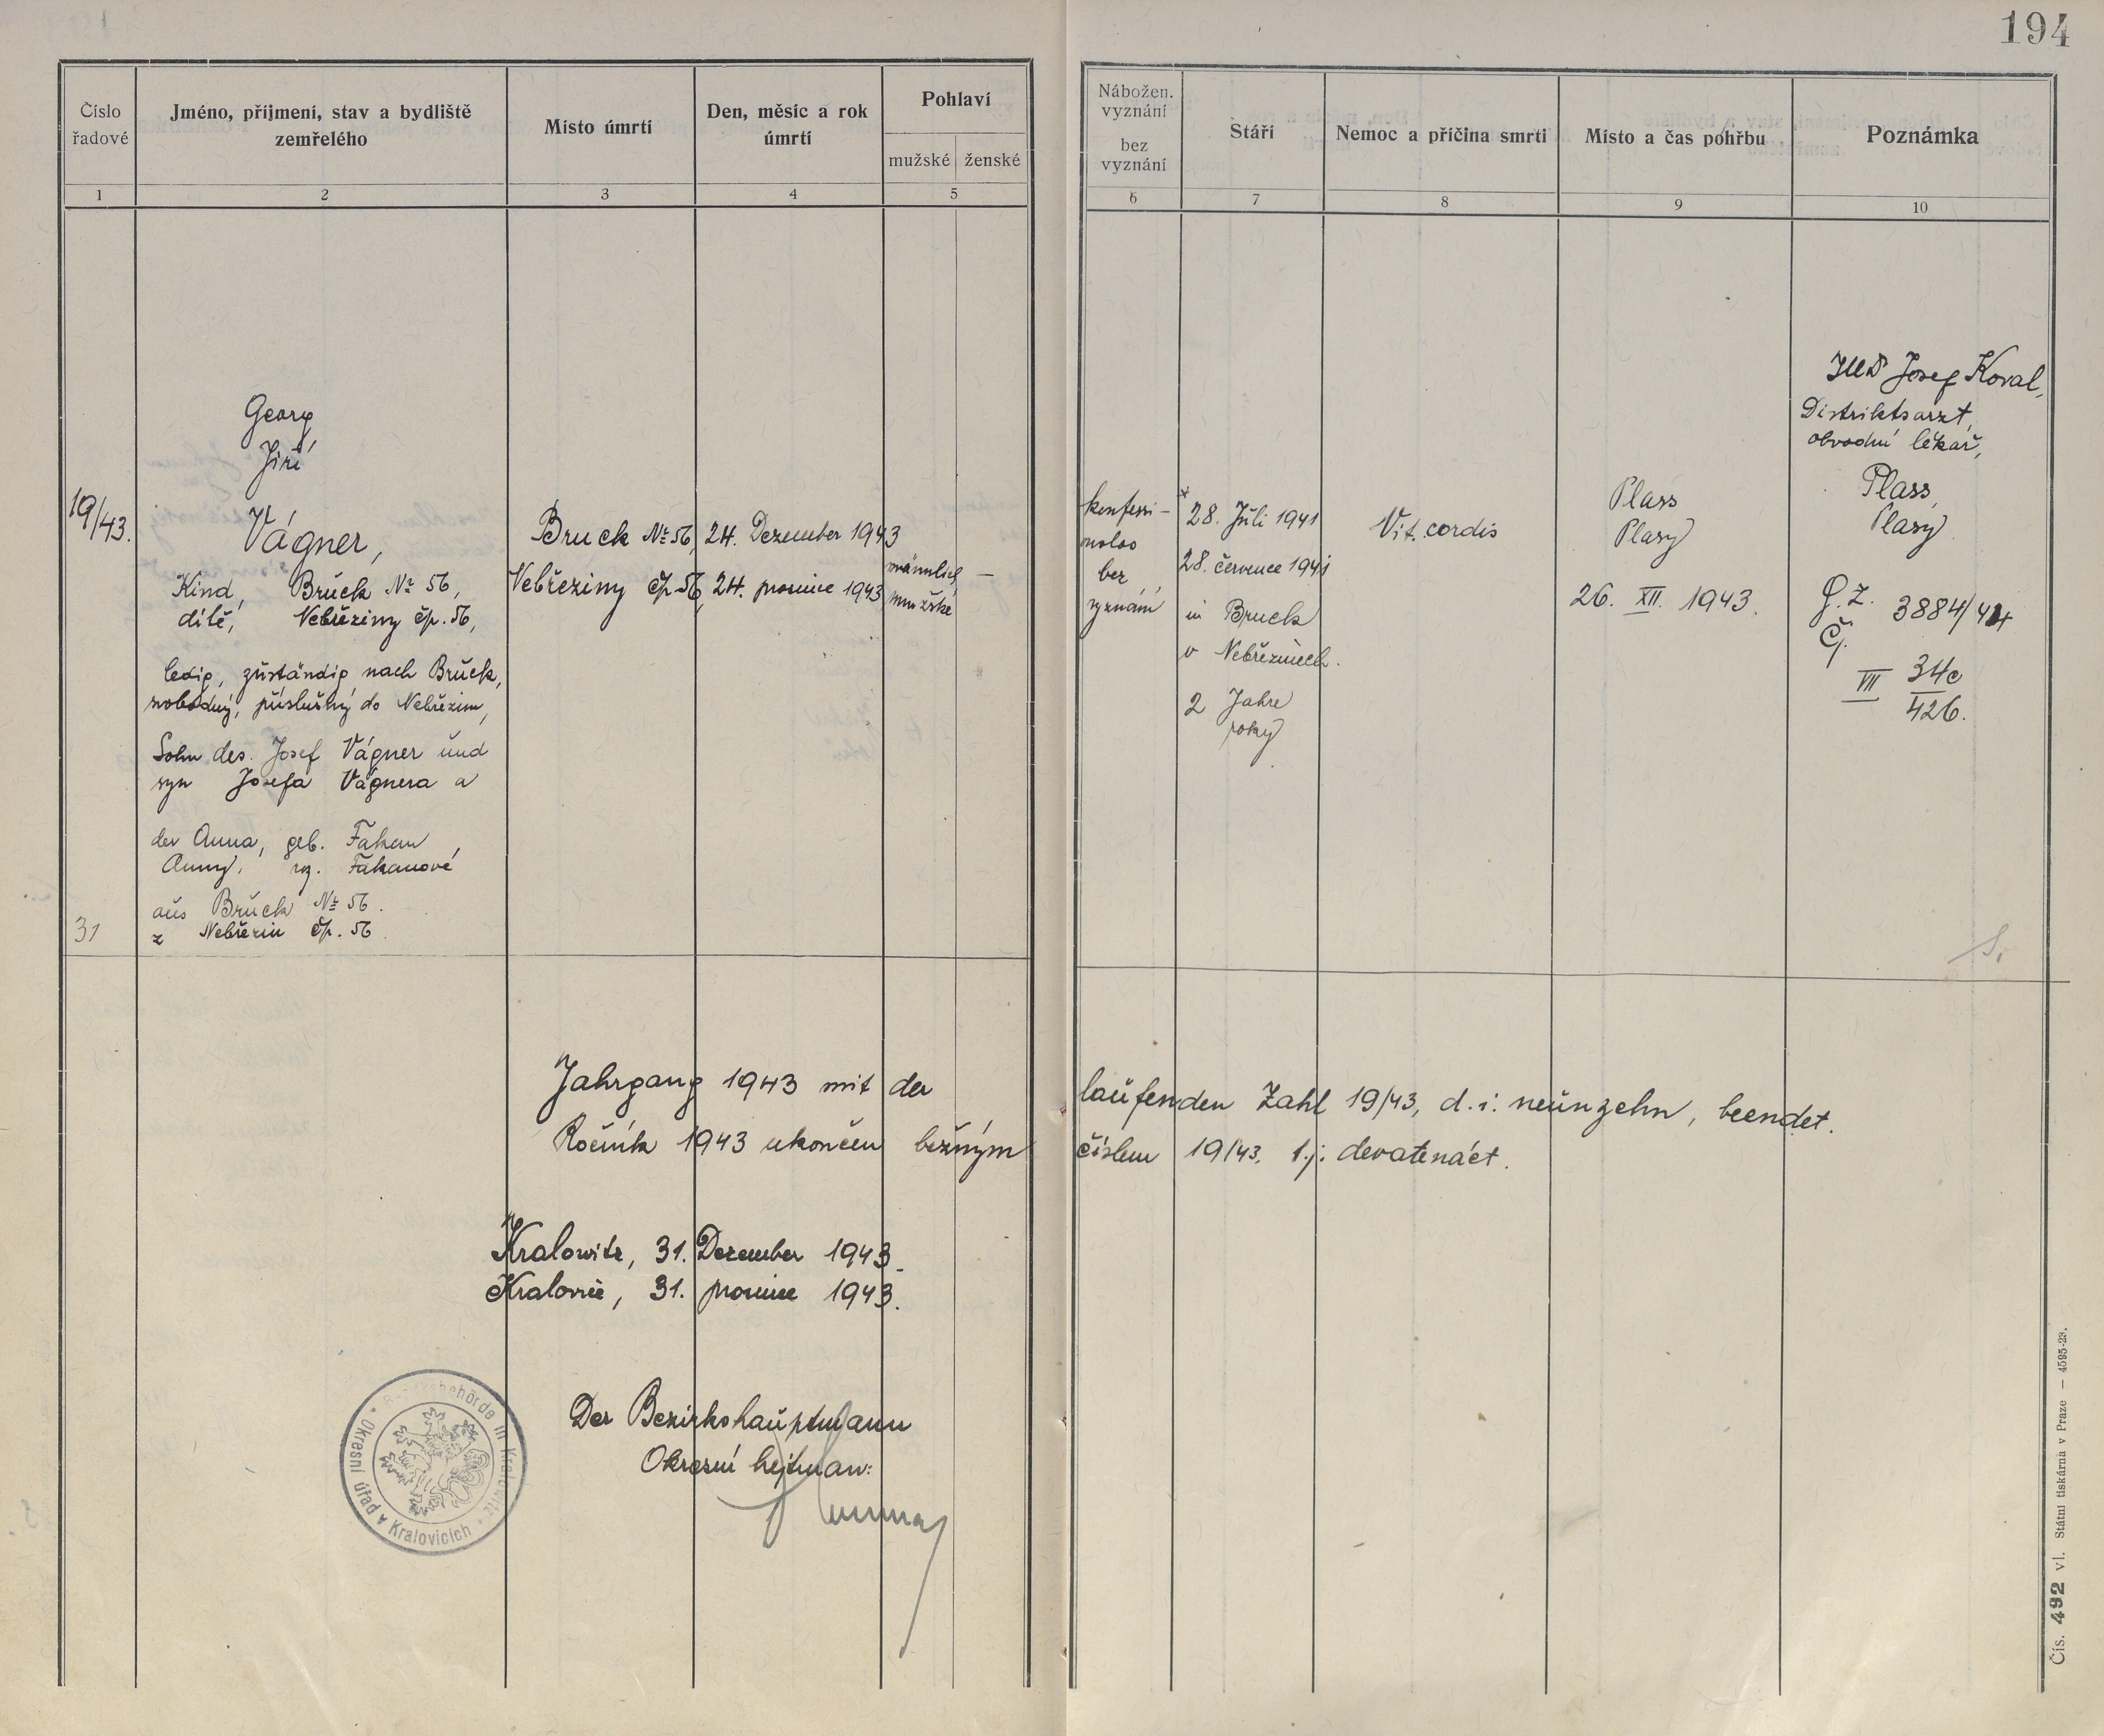 194
Číslo
řadové
Jméno, příjmení, stav a bydliště
zemřelého
Místo úmrtí
Den, měsíc a rok
úmrtí
Pohlaví
mužské ženské
Nábožen.
vyznání
bez
vyznání
Stáří
Nemoc a příčina smrti
Místo a čas pohřbu
Poznámka
1 2 3 4 5 6 7 8 9 10
19/43.
Georg
Jiří
Vágner,
Kind, Bruck № 56,
dítě, Nebřeziny čp. 56,
ledig, zuständig nach Bruck,
svobodný, příslušný do Nebřezin,
Sohn des Josef Vágner und
syn Josefa Vágnera a
der Anna, geb. Fakan,
Anny, roz. Fakanové
aus Bruck № 56.
z Nebřezin čp. 56.
31
Bruck № 56,
Nebřeziny čp. 56,
24. Dezember 1943
24. prosince 1943
männlich
mužské
—
konfessi-
onslos
bez
vyznání
* 28. Juli 1941
28. července 1941
in Bruck
v Nebřezinech.
2 Jahre
roky
Vit. cordis
Plass
Plasy
26. XII. 1943.
MUDr Josef Koval,
Distriktsarzt,
obvodní lékař,
Plass,
Plasy
G. Z. 3884/44
Čj.
VII 34c
426.
Jahrgang 1943 mit der laufenden Zahl 19/43, d. i. neunzehn, beendet.
Ročník 1943 ukončen běžným číslem 19/43, t. j. devatenáct.
Kralowitz, 31. Dezember 1943.
Kralovice, 31. prosince 1943.
Der Bezirkshauptmann
Okresní hejtman:
Bezirksbehörde in Kralowitz
Okresní úřad v Kralovicích
Čís. 492 vl. Státní tiskárna v Praze — 4595-29.